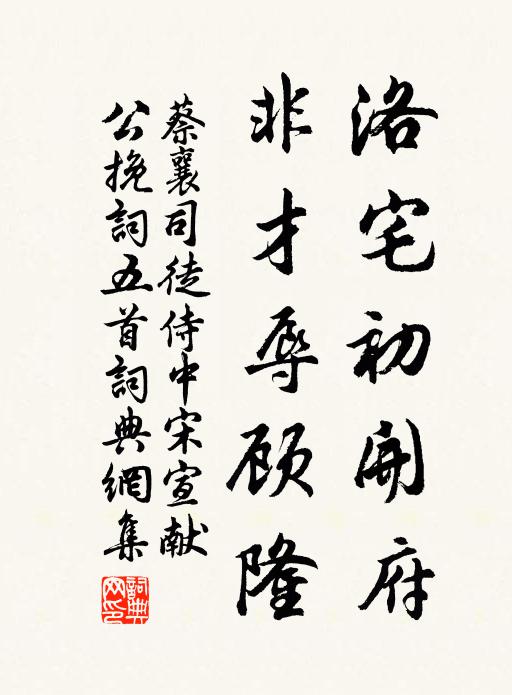 洛宅初開府
非才辱顾隆
蔡襄司徒侍中宋宣献
公挽詞五首詞典網集
詞典網印